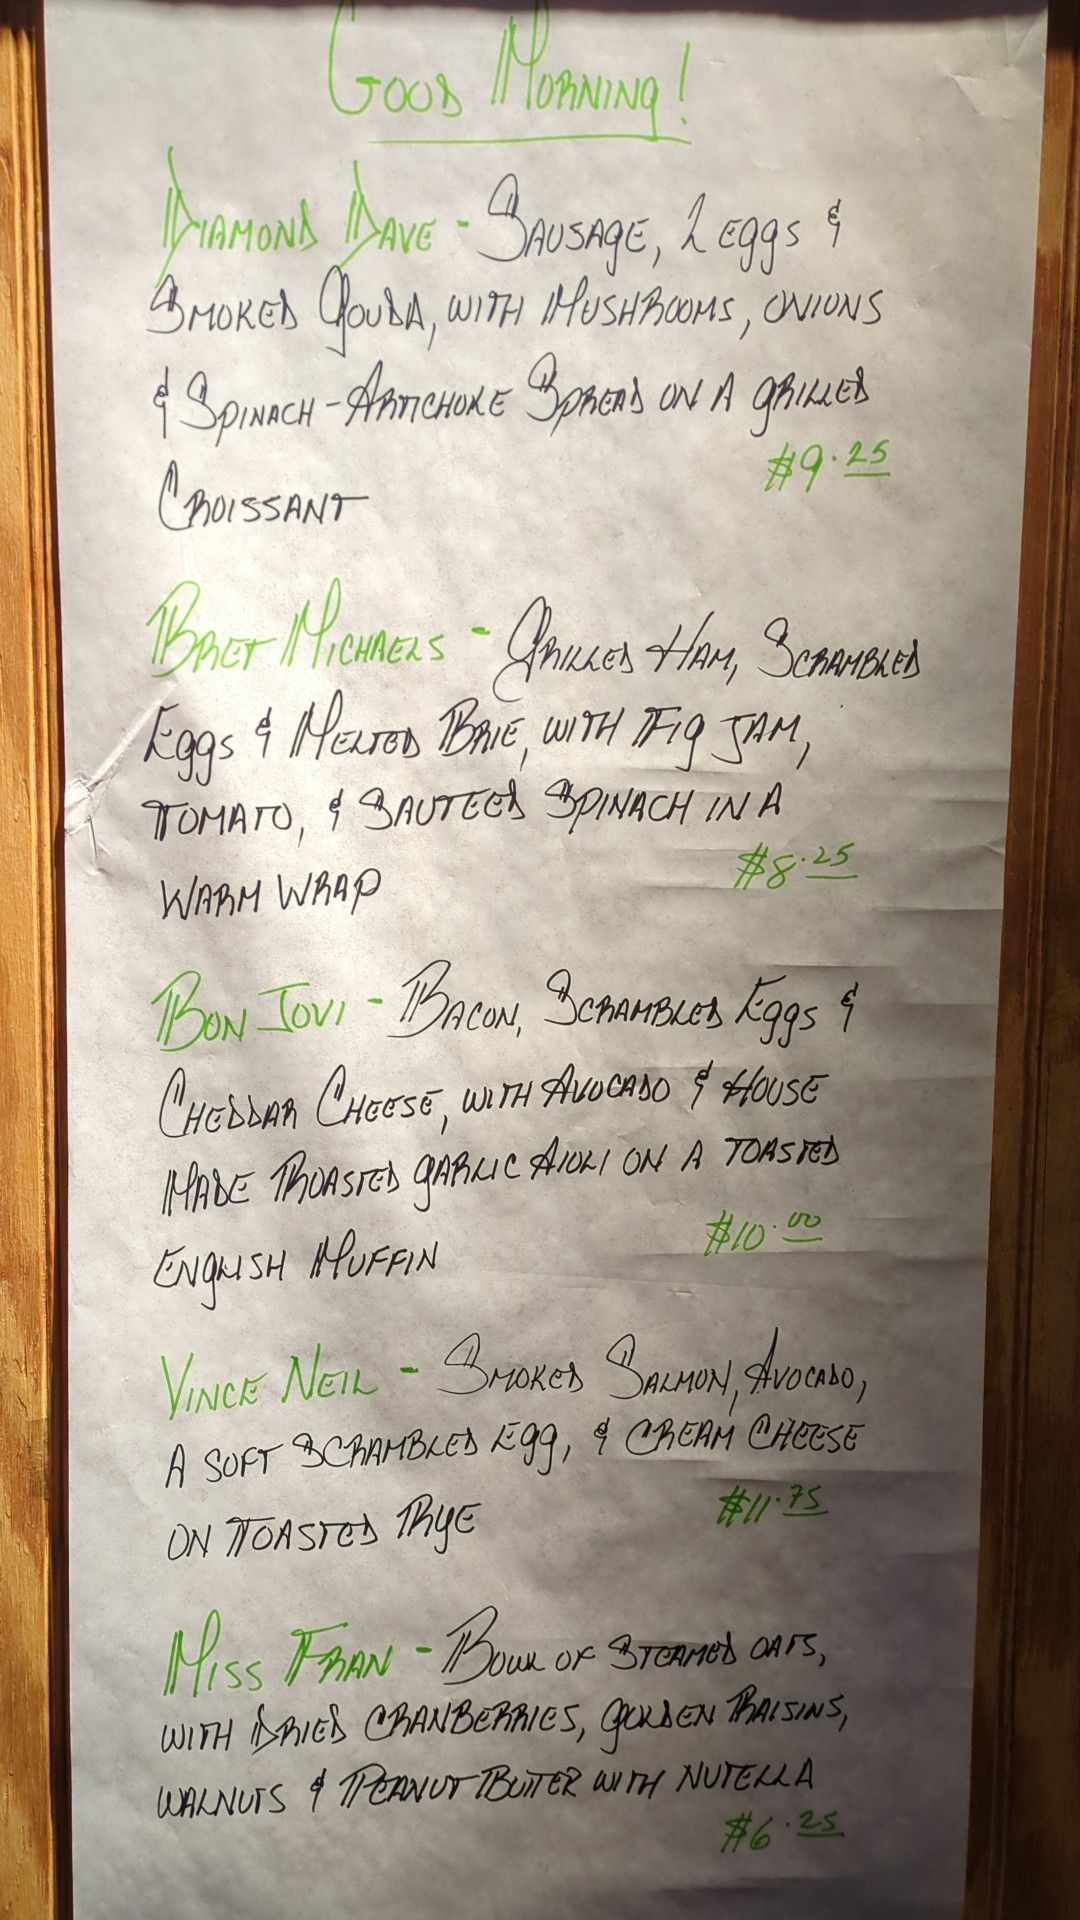 Good Morning!
Diamond Dave - Sausage, 2 eggs &
Smoked Gouda, with Mushrooms, onions
& Spinach-Artichoke Spread on a grilled
$9.25
Croissant
Bret Michaels - Grilled Ham, Scrambled
Eggs & Melted Brie, with Fig Jam,
Tomato, & Sauteed Spinach in a
$8.25
warm wrap
Bon Jovi - Bacon, Scrambled Eggs &
Cheddar Cheese, with Avocado & House
Made Roasted Garlic Aioli on a toasted
$10.00
English Muffin
Vince Neil - Smoked Salmon, Avocado,
a soft scrambled egg, & cream cheese
$11.75
on Toasted Rye
Miss Fran - Bowl of Steamed oats,
with Dried Cranberries, Golden Raisins,
walnuts & Peanut Butter with Nutella
$6.25